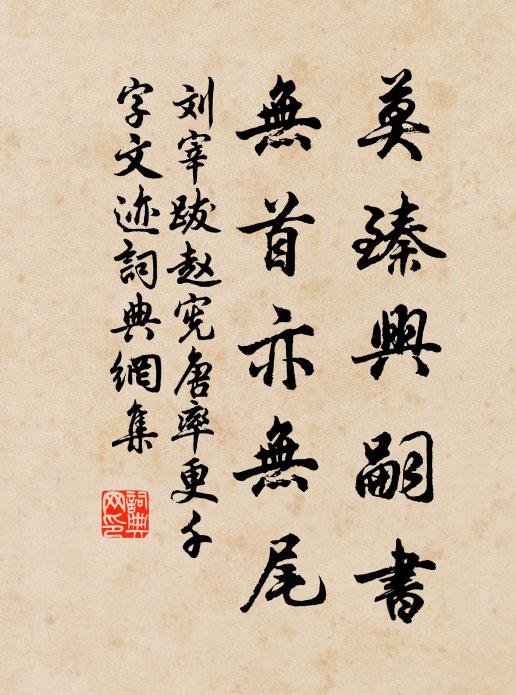 莫臻興嗣書
無首亦無尾
刘宰跋赵宪唐率更千
字文迹詞典網集
詞典网印